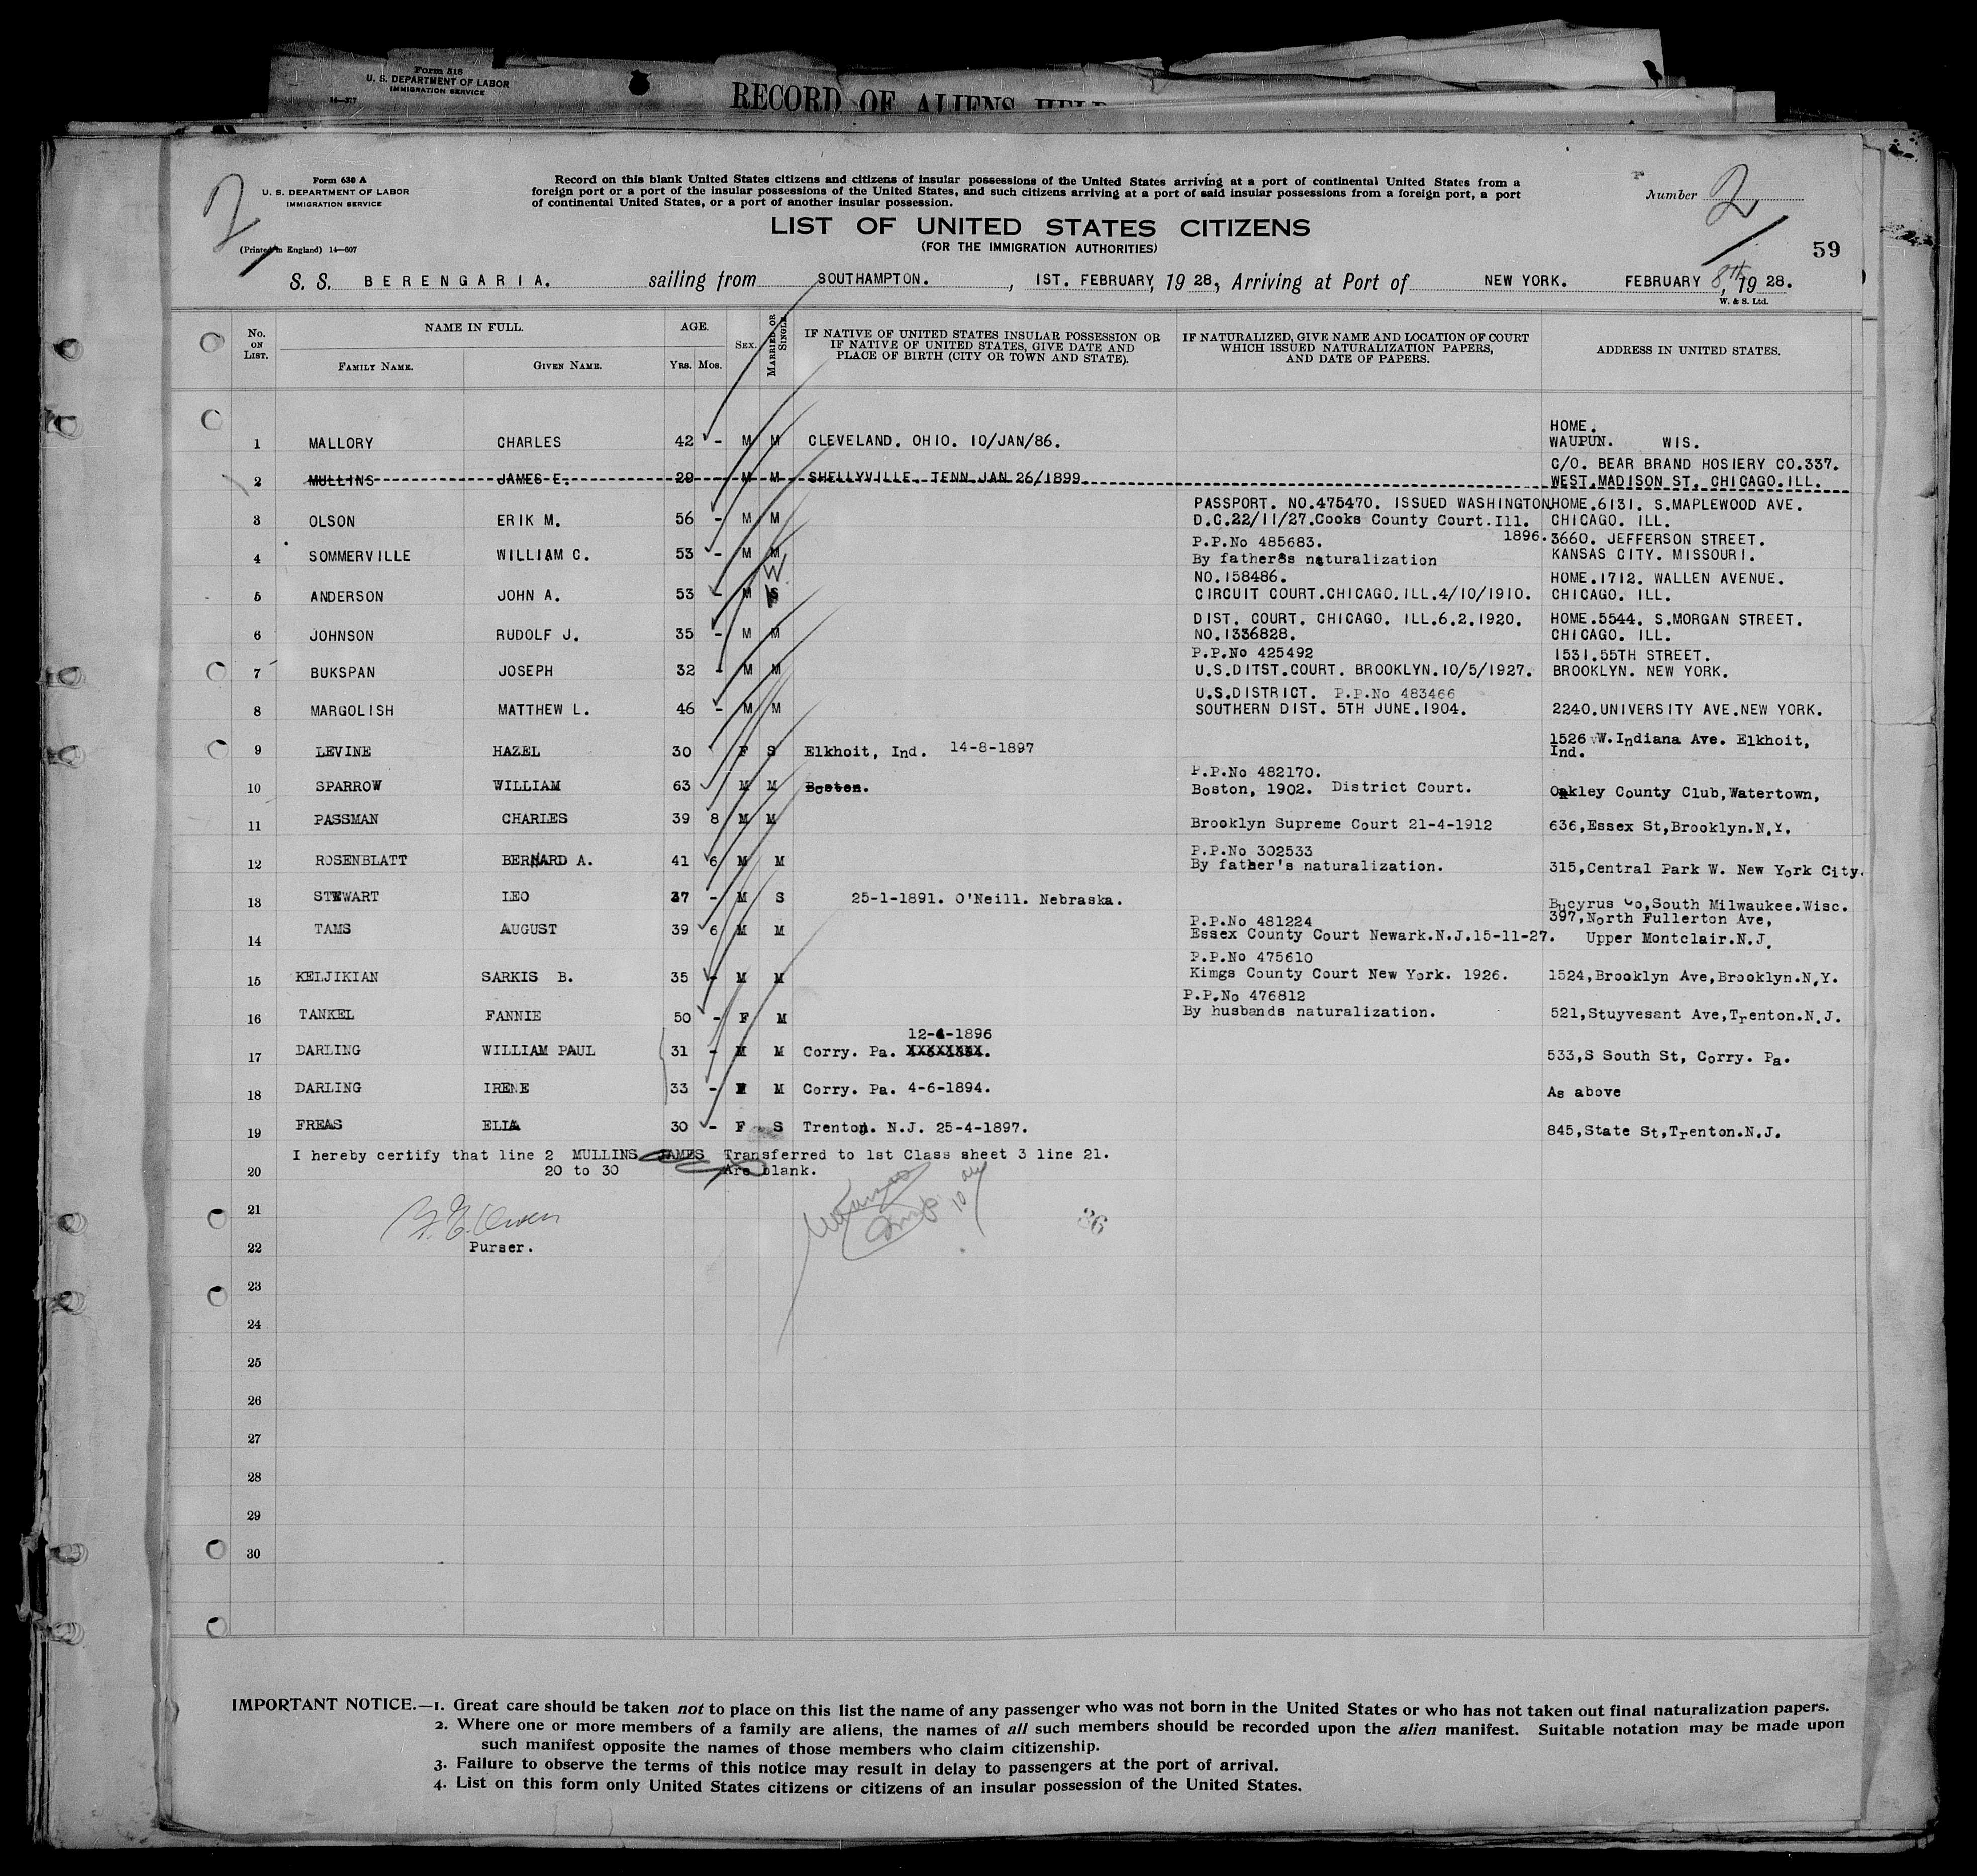 Form 518
U. S. DEPARTMENT OF LABOR
IMMIGRATION SERVICE
14—377
RECORD OF ALIENS HELD
2
Form 630 A
U. S. DEPARTMENT OF LABOR
IMMIGRATION SERVICE
(Printed in England) 14—607
Record on this blank United States citizens and citizens of insular possessions of the United States arriving at a port of continental United States from a
foreign port or a port of the insular possessions of the United States, and such citizens arriving at a port of said insular possessions from a foreign port, a port
of continental United States, or a port of another insular possession.
Number 2
LIST OF UNITED STATES CITIZENS
(FOR THE IMMIGRATION AUTHORITIES)
59
S. S. BERENGARIA. sailing from SOUTHAMPTON. , 1ST. FEBRUARY, 19 28, Arriving at Port of NEW YORK. FEBRUARY 8th, 19 28.
W. & S. Ltd.
No. ON LIST. NAME IN FULL. FAMILY NAME. GIVEN NAME. AGE. YRS. MOS. SEX. MARRIED OR SINGLE. IF NATIVE OF UNITED STATES INSULAR POSSESSION OR IF NATIVE OF UNITED STATES, GIVE DATE AND PLACE OF BIRTH (CITY OR TOWN AND STATE). IF NATURALIZED, GIVE NAME AND LOCATION OF COURT WHICH ISSUED NATURALIZATION PAPERS, AND DATE OF PAPERS. ADDRESS IN UNITED STATES.
HOME.
1 MALLORY CHARLES 42 - M M CLEVELAND. OHIO. 10/JAN/86. WAUPUN. WIS.
C/O. BEAR BRAND HOSIERY CO.337.
2 MULLINS JAMES E. 29 M M SHELLYVILLE. TENN JAN 26/1899 WEST.MADISON ST. CHICAGO.ILL.
PASSPORT. NO.475470. ISSUED WASHINGTON HOME.6131. S.MAPLEWOOD AVE.
3 OLSON ERIK M. 56 - M M D.C.22/11/27.Cooks County Court.Ill. 1896. CHICAGO. ILL.
P.P.No 485683. 3660. JEFFERSON STREET.
4 SOMMERVILLE WILLIAM C. 53 - M M By father8s naturalization KANSAS CITY. MISSOURI.
W
NO.158486. HOME.1712. WALLEN AVENUE.
5 ANDERSON JOHN A. 53 - M S CIRCUIT COURT.CHICAGO.ILL.4/10/1910. CHICAGO. ILL.
DIST. COURT. CHICAGO. ILL.6.2.1920. HOME.5544. S.MORGAN STREET.
6 JOHNSON RUDOLF J. 35 - M M NO.1336828. CHICAGO. ILL.
P.P.No 425492 1531.55TH STREET.
7 BUKSPAN JOSEPH 32 - M M U.S.DITST.COURT. BROOKLYN.10/5/1927. BROOKLYN. NEW YORK.
U.S.DISTRICT. P.P.No 483466
8 MARGOLISH MATTHEW L. 46 - M M SOUTHERN DIST. 5TH JUNE.1904. 2240.UNIVERSITY AVE.NEW YORK.
9 LEVINE HAZEL 30 F S Elkhoit, Ind. 14-8-1897 1526 W.Indiana Ave. Elkhoit,
Ind.
P.P.No 482170.
10 SPARROW WILLIAM 63 M M Boston. Boston, 1902. District Court. Oakley County Club,Watertown,
11 PASSMAN CHARLES 39 8 M M Brooklyn Supreme Court 21-4-1912 636,Essex St,Brooklyn.N.Y.
P.P.No 302533
12 ROSENBLATT BERNARD A. 41 6 M M By father's naturalization. 315,Central Park W. New York City.
13 STEWART LEO 37 - M S 25-1-1891. O'Neill. Nebraska. Bucyrus Co,South Milwaukee.Wisc.
P.P.No 481224 397,North Fullerton Ave,
14 TAMS AUGUST 39 6 M M Essex County Court Newark.N.J.15-11-27. Upper Montclair.N.J.
P.P.No 475610
15 KELJIKIAN SARKIS B. 35 - M M Kimgs County Court New York. 1926. 1524,Brooklyn Ave,Brooklyn.N.Y.
P.P.No 476812
16 TANKEL FANNIE 50 - F M By husbands naturalization. 521,Stuyvesant Ave,Trenton.N.J.
12-4-1896
17 DARLING WILLIAM PAUL 31 - M M Corry. Pa. XXXXXXXX. 533,S South St, Corry. Pa.
18 DARLING IRENE 33 - M Corry. Pa. 4-6-1894. As above
19 FREAS ELIA 30 - F S Trenton. N.J. 25-4-1897. 845,State St,Trenton.N.J.
I hereby certify that line 2 MULLINS JAMES Transferred to 1st Class sheet 3 line 21.
20 20 to 30 Are blank.
21
22 Purser.
36
23
24
25
26
27
28
29
30
IMPORTANT NOTICE.—1. Great care should be taken not to place on this list the name of any passenger who was not born in the United States or who has not taken out final naturalization papers.
2. Where one or more members of a family are aliens, the names of all such members should be recorded upon the alien manifest. Suitable notation may be made upon
such manifest opposite the names of those members who claim citizenship.
3. Failure to observe the terms of this notice may result in delay to passengers at the port of arrival.
4. List on this form only United States citizens or citizens of an insular possession of the United States.